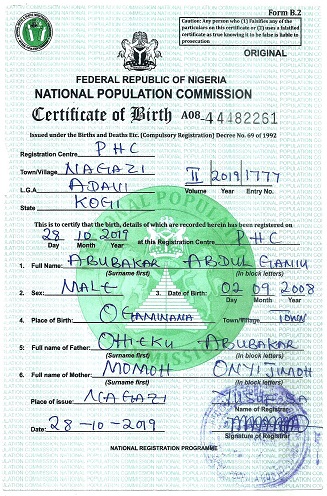 Form B.2
Caution: Any person who (1) Falsifies any of the particulars on this certificate or (2) uses a falsified certificate as true knowing it to be false is liable to prosecution
ORIGINAL
FEDERAL REPUBLIC OF NIGERIA
NATIONAL POPULATION COMMISSION
Certificate of Birth A08-44482261
Issued under the Births and Deaths Etc. (Compulsory Registration) Decree No. 69 of 1992
Registration Centre PHC
Town/Village NAGAZI II 2019 1777
L.G.A ADAVI Volume Year Entry No.
State KOGI
This is to certify that the birth, details of which are recorded herein has been registered on
28 10 2019 at this Registration Centre PHC
Day Month Year
1. Full Name: ABUBAKAR ABDULGANIU
(Surname first) (In block letters)
2. Sex: MALE 3. Date of Birth: 02 09 2008
Day Month Year
4. Place of Birth: Town/Village TOWN
5. Full name of Father: OHIEKU ABUBAKAR
(Surname first) (In block letters)
6. Full name of Mother: MOMOH ONYIJIMOH
(Surname first) (In block letters)
Place of issue: NAGAZI YUSUF
Name of Registrar
Date: 28-10-2019
Signature of Registrar
NATIONAL REGISTRATION PROGRAMME